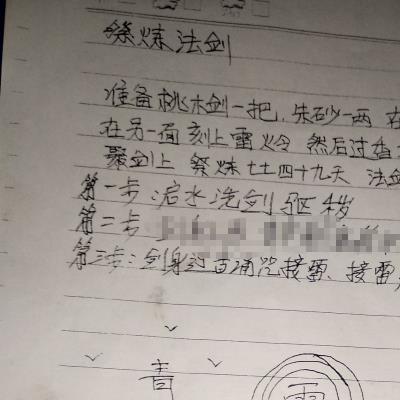 祭炼法剑
准备桃木剑一把,朱砂一两 在
在另一面刻上雷火令 然后过香
聚剑上 祭炼七七四十九天 法剑
第一步:沿水洗剑 驱秽
第二步
第三步:剑身过百诵咒接雷、接雷
青
雷